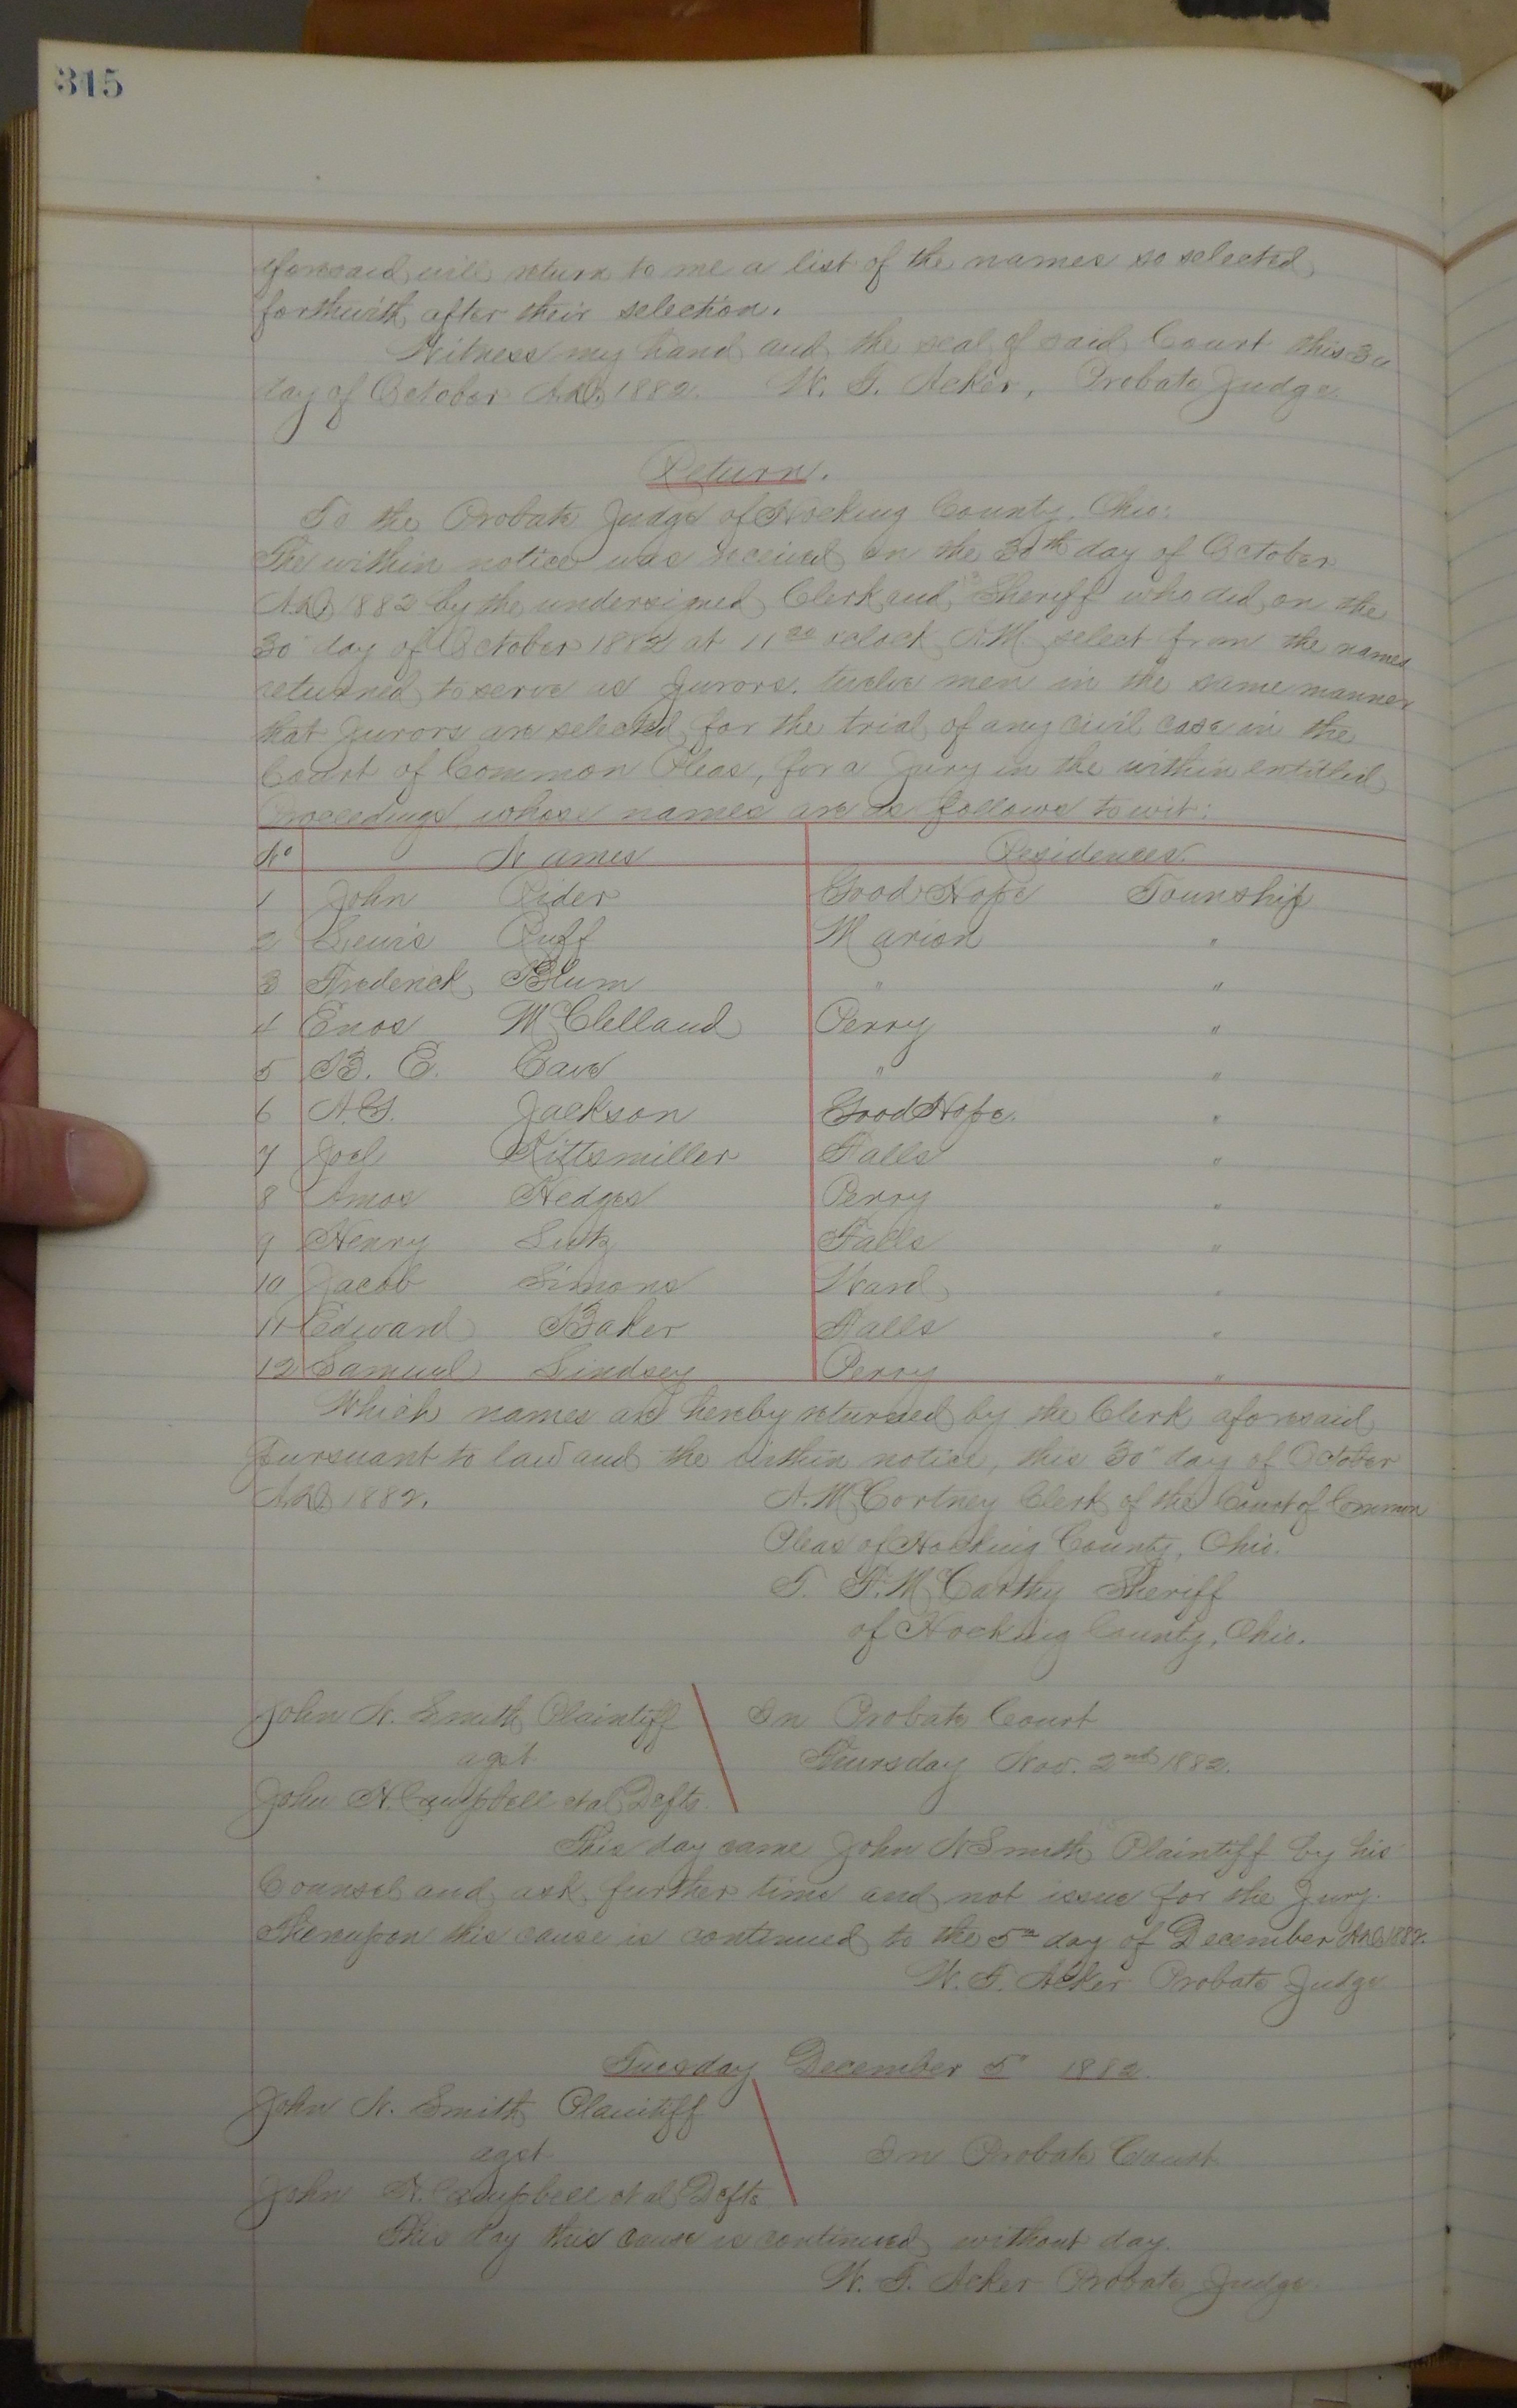 315
aforesaid, will return to me a list of the names so selected
forthwith after their selection.
Witness my hand and the seal of said Court this 30
day of October A.D. 1882. W. T. Acker, Probate Judge.
Return.
To the Probate Judge of Hocking County, Ohio:
The within notice was received on the 30th day of October
A.D. 1882 by the undersigned Clerk and Sheriff who did on the
30 day of October 1882 at 11 oclock A.M. select from the names
returned to serve as Jurors, twelve men in the same manner
that Jurors are selected for the trial of any civil case in the
Court of Common Pleas, for a Jury in the within entitled
Proceedings whose names are as follows to wit:
No Names Residences.
1 John Rider Good Hope Township
2 Lewis Puff Marion "
3 Frederick Blum " "
4 Enos McClelland Perry "
5 B. E. Cave " "
6 A.G. Jackson Good Hope. "
7 Joel Kittsmiller Falls "
8 Amos Hedges Perry "
9 Henry Lutz Falls "
10 Jacob Simons Ward "
11 Edward Baker Falls "
12 Samuel Lindsey Perry "
Which names are hereby returned by the Clerk aforesaid
Pursuant to law and the within notice, this 30" day of October
A.D. 1882. A. McCortney Clerk of the Court of Common
Pleas of Hocking County, Ohio.
T. F. McCarthy Sheriff
of Hocking County, Ohio.
John N. Smith Plaintiff In Probate Court
agst Thursday Nov. 2nd 1882.
John H. Campbell et al Defts.
This day came John N Smith Plaintiff by his
Counsel and ask further time and not issue for the Jury.
Thereupon this cause is continued to the 5th day of December A.D. 1882.
W. T. Acker Probate Judge
Tuesday December 5" 1882.
John N. Smith Plaintiff
agst In Probate Court
John H. Campbell et al Defts.
This day this cause is continued without day.
W. T. Acker Probate Judge